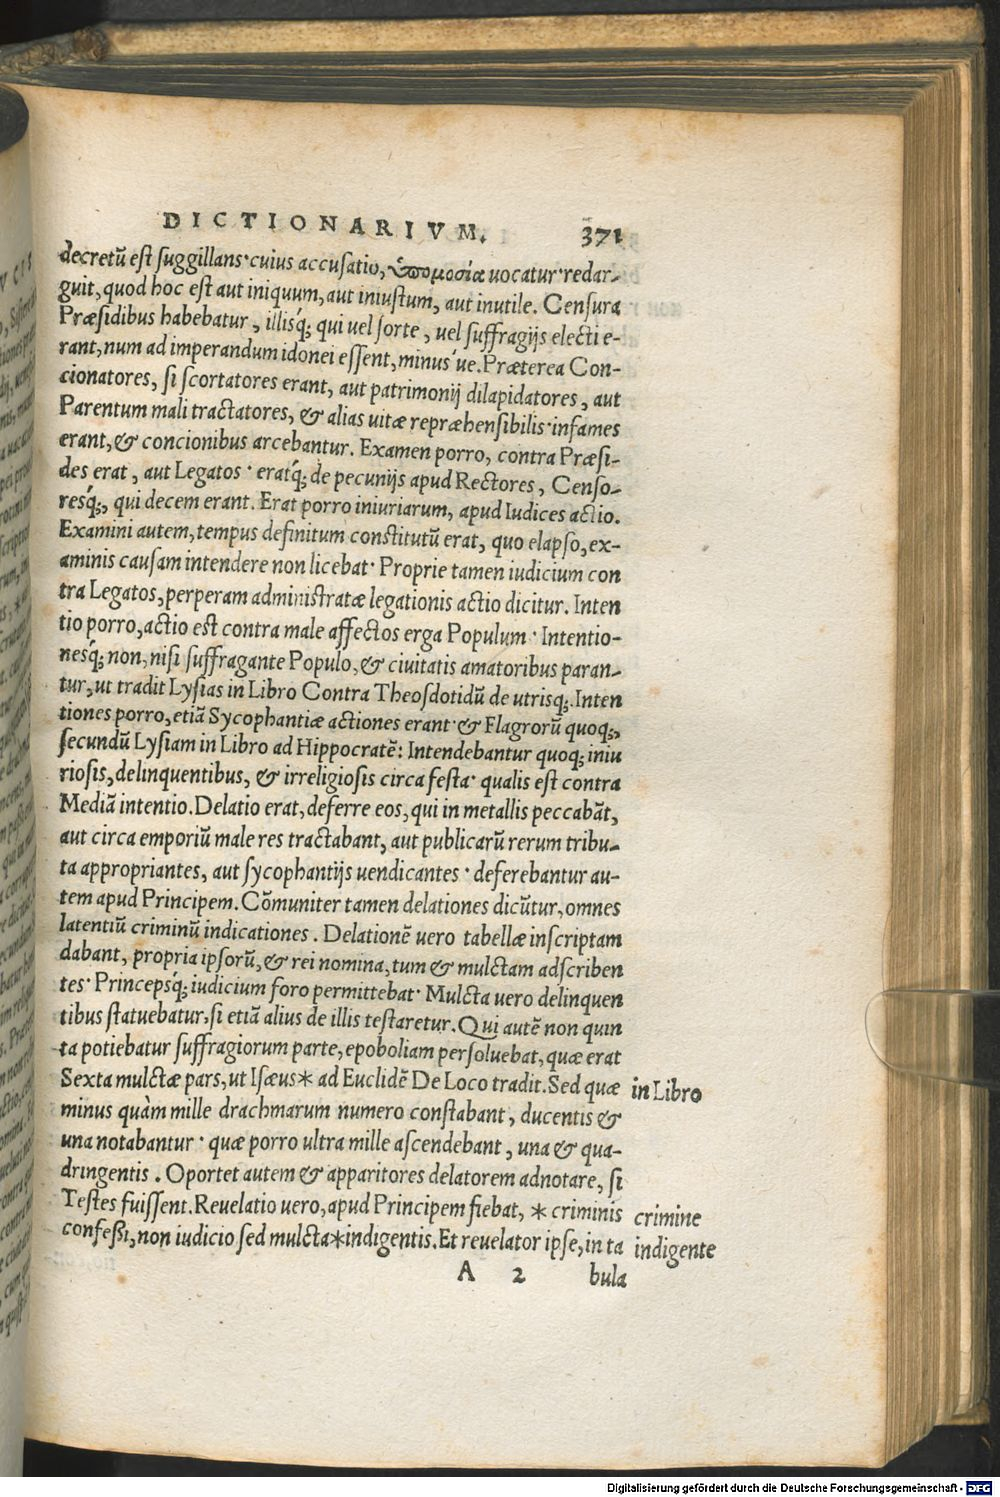 DICTIONARIVM. 371
decretū est suggillans· cuius accusatio, ὑπομοσία uocatur· redar-
guit, quod hoc est aut iniquum, aut iniustum, aut inutile. Censura
Præsidibus habebatur, illisq́; qui uel sorte, uel suffragijs electi e-
rant, num ad imperandum idonei essent, minus'ue. Præterea Con-
cionatores, si scortatores erant, aut patrimonij dilapidatores, aut
Parentum mali tractatores, & alias uitæ repræhensibilis· infames
erant, & concionibus arcebantur. Examen porro, contra Præsi-
des erat, aut Legatos· eratq́; de pecunijs apud Rectores, Censo-
resq́;, qui decem erant. Erat porro iniuriarum, apud Iudices actio.
Examini autem, tempus definitum constitutū erat, quo elapso, ex-
aminis causam intendere non licebat· Proprie tamen iudicium con
tra Legatos, perperam administratæ legationis actio dicitur. Inten
tio porro, actio est contra male affectos erga Populum· Intentio-
nesq́; non, nisi suffragante Populo, & ciuitatis amatoribus paran-
tur, ut tradit Lysias in Libro Contra Theosdotidū de utrisq;. Inten
tiones porro, etiā Sycophantiæ actiones erant· & Flagrorū quoq;,
secundū Lysiam in Libro ad Hippocratē: Intendebantur quoq; iniu
riosis, delinquentibus, & irreligiosis circa festa· qualis est contra
Mediā intentio. Delatio erat, deferre eos, qui in metallis peccabāt,
aut circa emporiū male res tractabant, aut publicarū rerum tribu-
ta appropriantes, aut sycophantijs uendicantes· deferebantur au-
tem apud Principem. Cōmuniter tamen delationes dicūtur, omnes
latentiū criminū indicationes. Delationē uero tabellæ inscriptam
dabant, propria ipsorū, & rei nomina, tum & mulctam adscriben
tes· Princepsq́; iudicium foro permittebat· Mulcta uero delinquen
tibus statuebatur, si etiā alius de illis testaretur. Qui autē non quin
ta potiebatur suffragiorum parte, epoboliam persoluebat, quæ erat
Sexta mulctæ pars, ut Isæus* ad Euclidē De Loco tradit. Sed quæ in Libro
minus quàm mille drachmarum numero constabant, ducentis &
una notabantur· quæ porro ultra mille ascendebant, una & qua-
dringentis. Oportet autem & apparitores delatorem adnotare, si
Testes fuissent. Reuelatio uero, apud Principem fiebat, * criminis crimine
confessi, non iudicio sed mulcta*indigentis. Et reuelator ipse, in ta indigente
A 2 bula
Digitalisierung gefördert durch die Deutsche Forschungsgemeinschaft - DFG